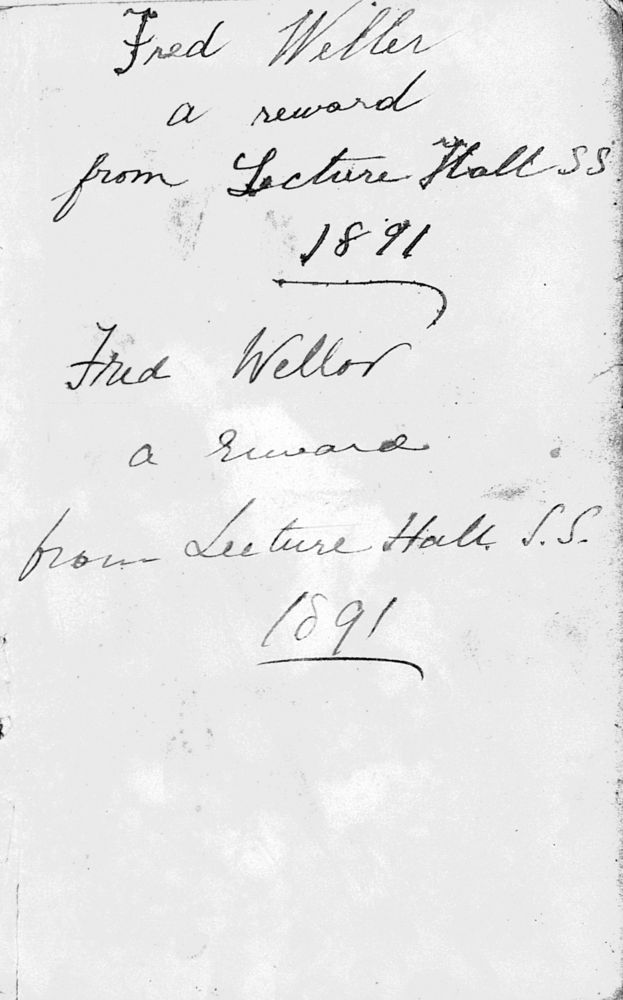 Fred Weller
a reward
from Lecture Hall SS
1891
Fred Weller
a Reward
from Lecture Hall S.S.
1891